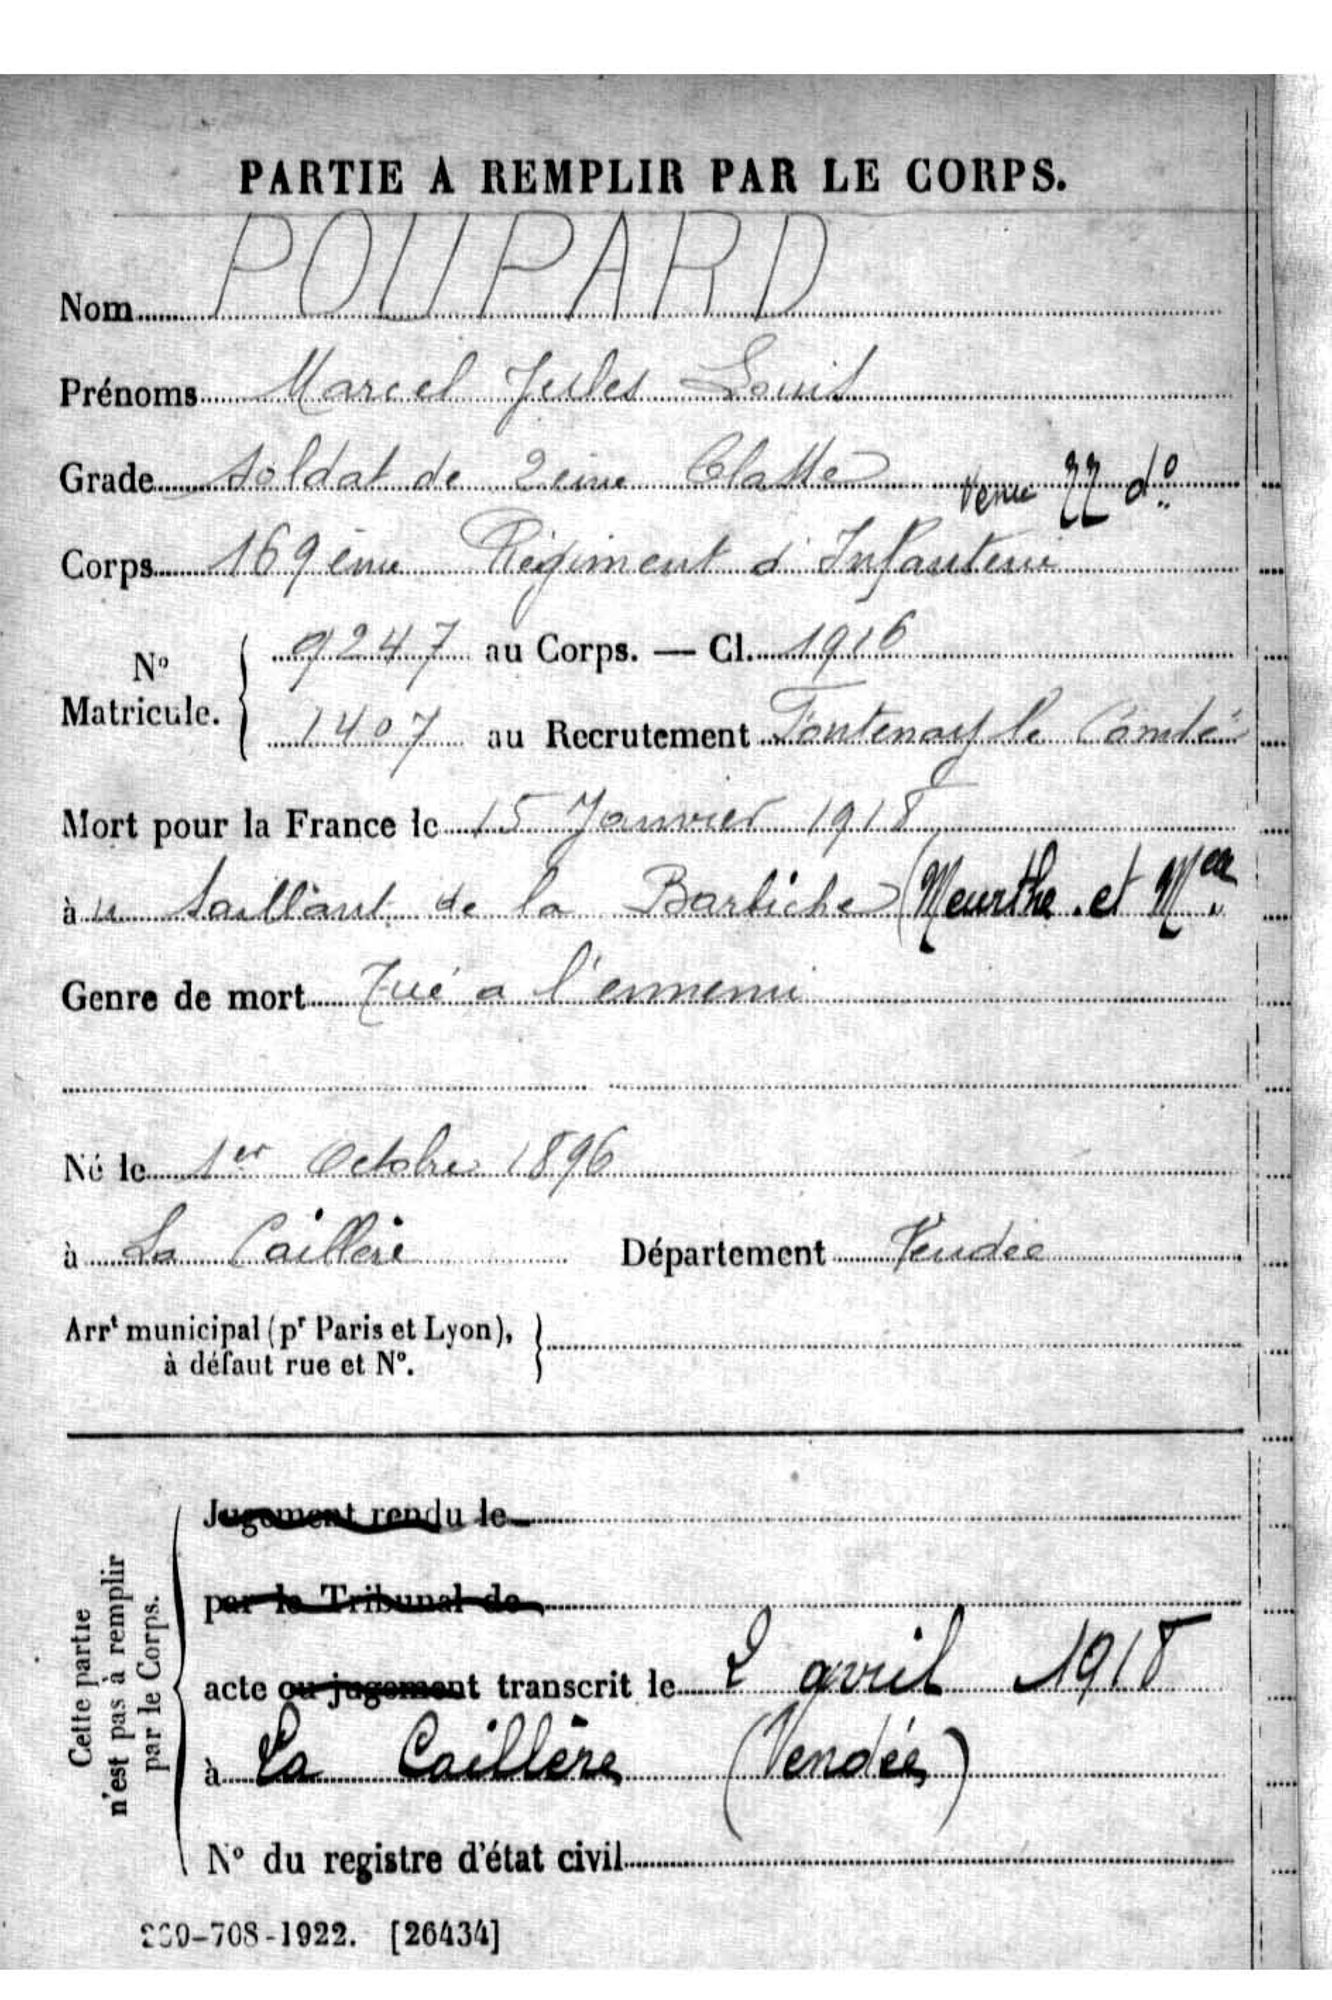 PARTIE À REMPLIR PAR LE CORPS.
Nom POUPARD
Prénoms Marcel Jules Louis
Grade soldat de 2ème Classe
Corps 169ème Régiment d'Infanterie
N° Matricule. 9247 au Corps. — Cl. 1916
1407 au Recrutement Fontenay le Comte
Mort pour la France le 15 Janvier 1918
à u Saillant de la Barbiche (Meurthe et Melle
Genre de mort Tué a l'ennemi
Né le 1er Octobre 1896
à La Caillère Département Vendée
Arrt municipal (pr Paris et Lyon),
à défaut rue et N°.
Cette partie
n'est pas à remplir
par le Corps.
Jugement rendu le
par le Tribunal de
acte ou jugement transcrit le 2 avril 1918
à La Caillère (Vendée)
N° du registre d'état civil
-708-1922. [26434]